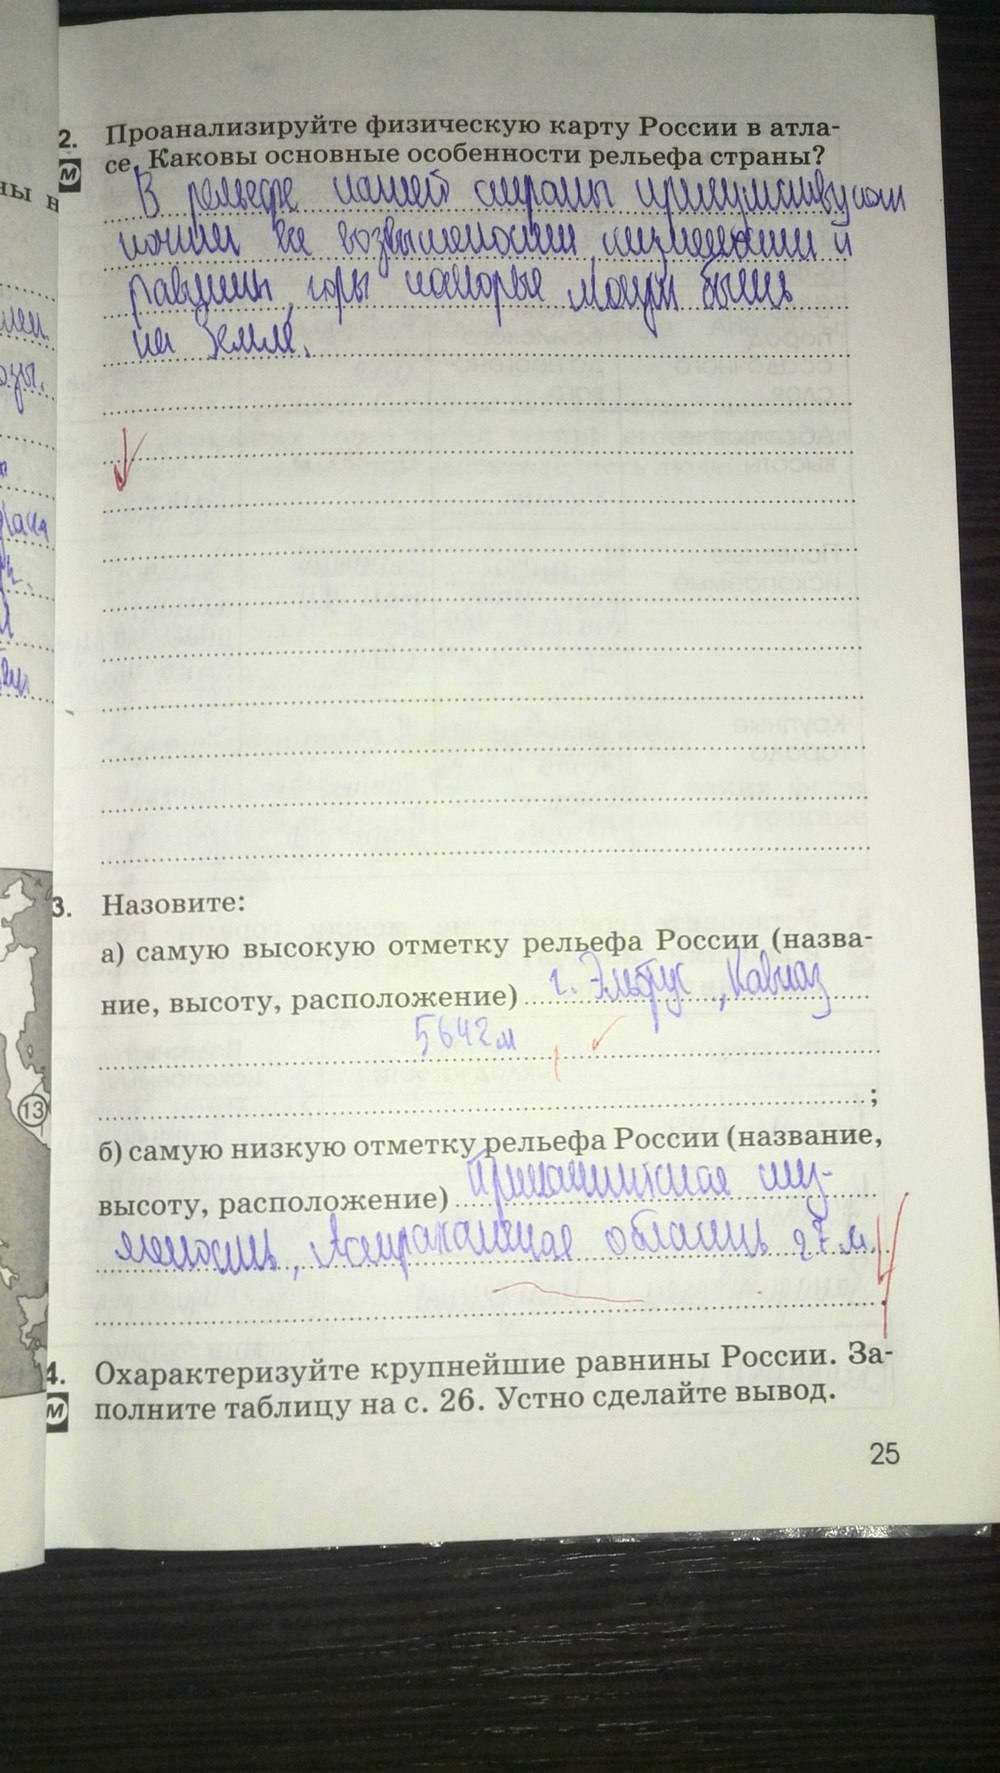 ны н
2. Проанализируйте физическую карту России в атла-
М се. Каковы основные особенности рельефа страны?
В рельефе нашей страны присутствуют
почти все возвышенности, низменности и
равнины, горы которые могут быть
на Земле.
3. Назовите:
а) самую высокую отметку рельефа России (назва-
ние, высоту, расположение) г. Эльбрус, Кавказ
5642м
;
13
б) самую низкую отметку рельефа России (название,
высоту, расположение) Прикаспийская низ-
менность, Астраханская область 27 м.
4. Охарактеризуйте крупнейшие равнины России. За-
М полните таблицу на с. 26. Устно сделайте вывод.
25